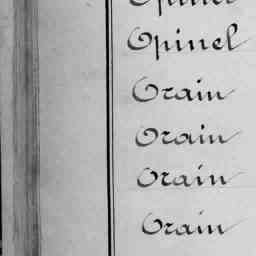 Opinel
Opinel
Orain
Orain
Orain
Orain